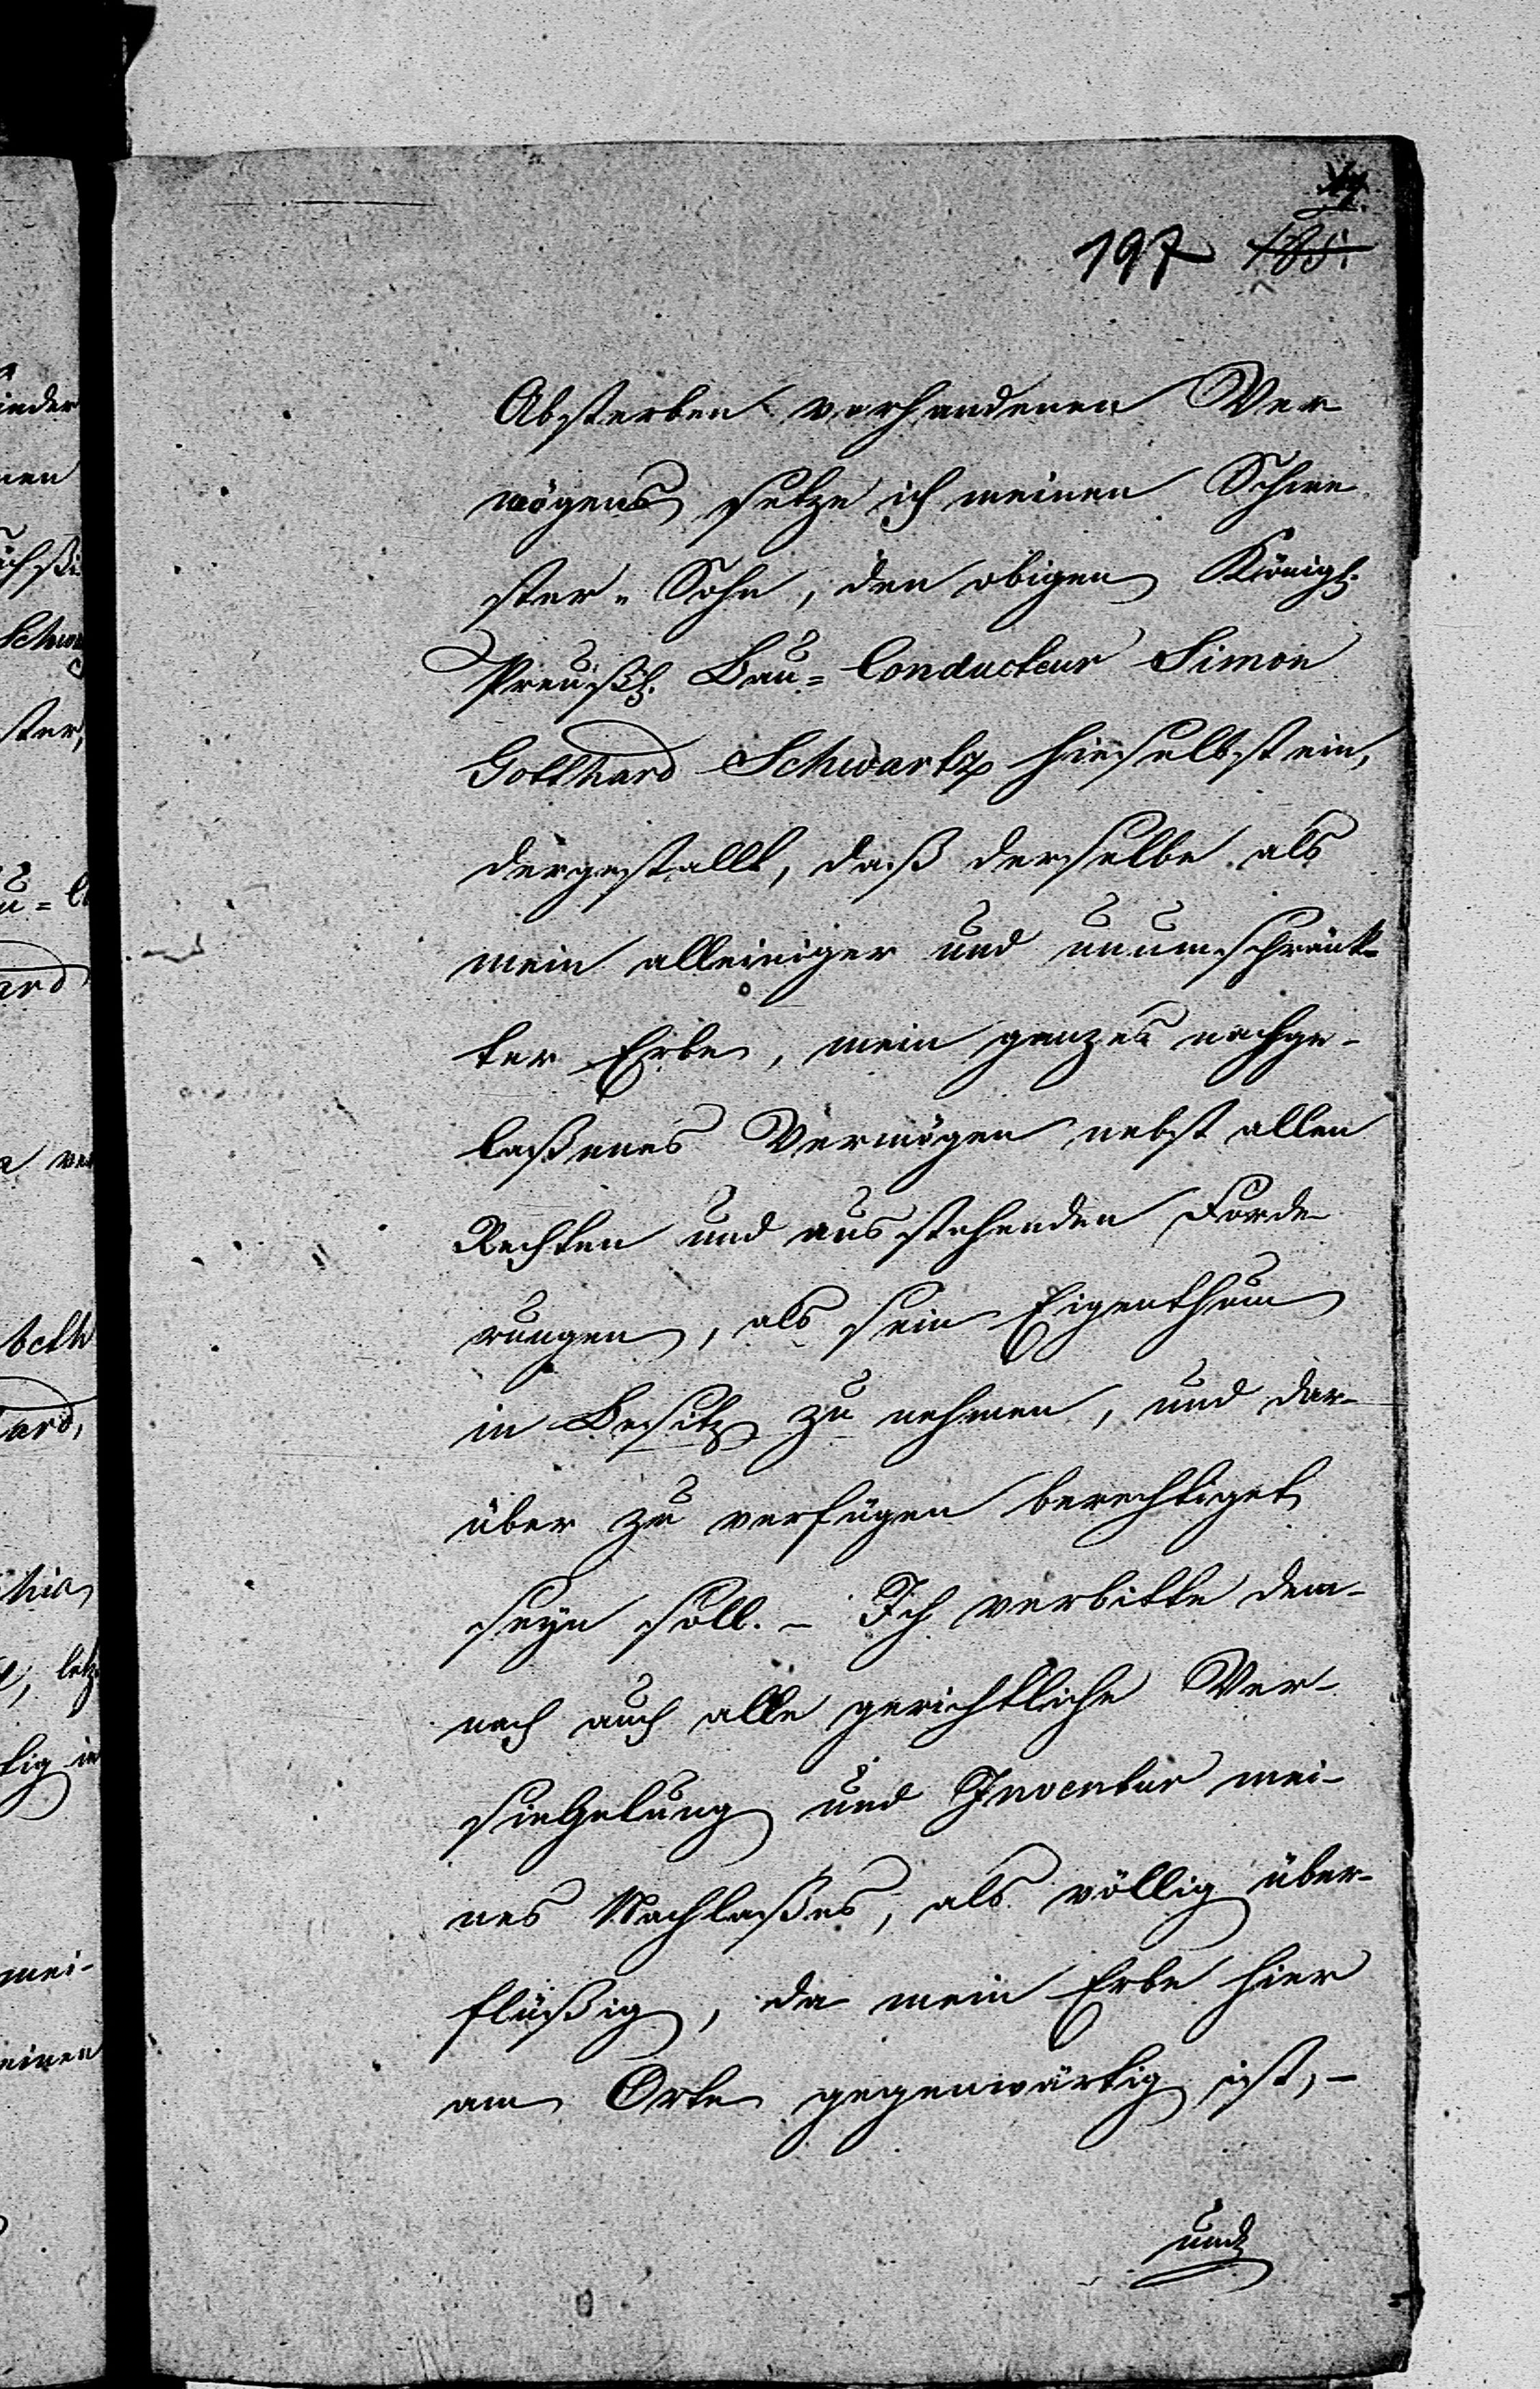 197
Absterben vorhandenen Ver
mögens setze ich meinen Schwe
ster-Sohn, den obigen Königl.
Preußl. Bau-Conducteur Simon
Gotthard Schwartz hieselbst ein,
dergestallt, daß derselbe als
mein alleiniger und unumschränk-
ter Erbe, mein ganzes nachge-
laßenes Vermögen nebst allen
Rechten und ausstehenden Forde
rungen, als sein Eigenthum
in Besitz zu nehmen, und dar-
über zu verfügen berechtiget
seyn soll. - Ich verbitte dem-
nach auch alle gerichtliche Ver-
siegelung und Inventur mei-
nes Nachlaßes, als völlig über-
flüßig, da mein Erbe hier
am Orte gegenwärtig ist, -
und